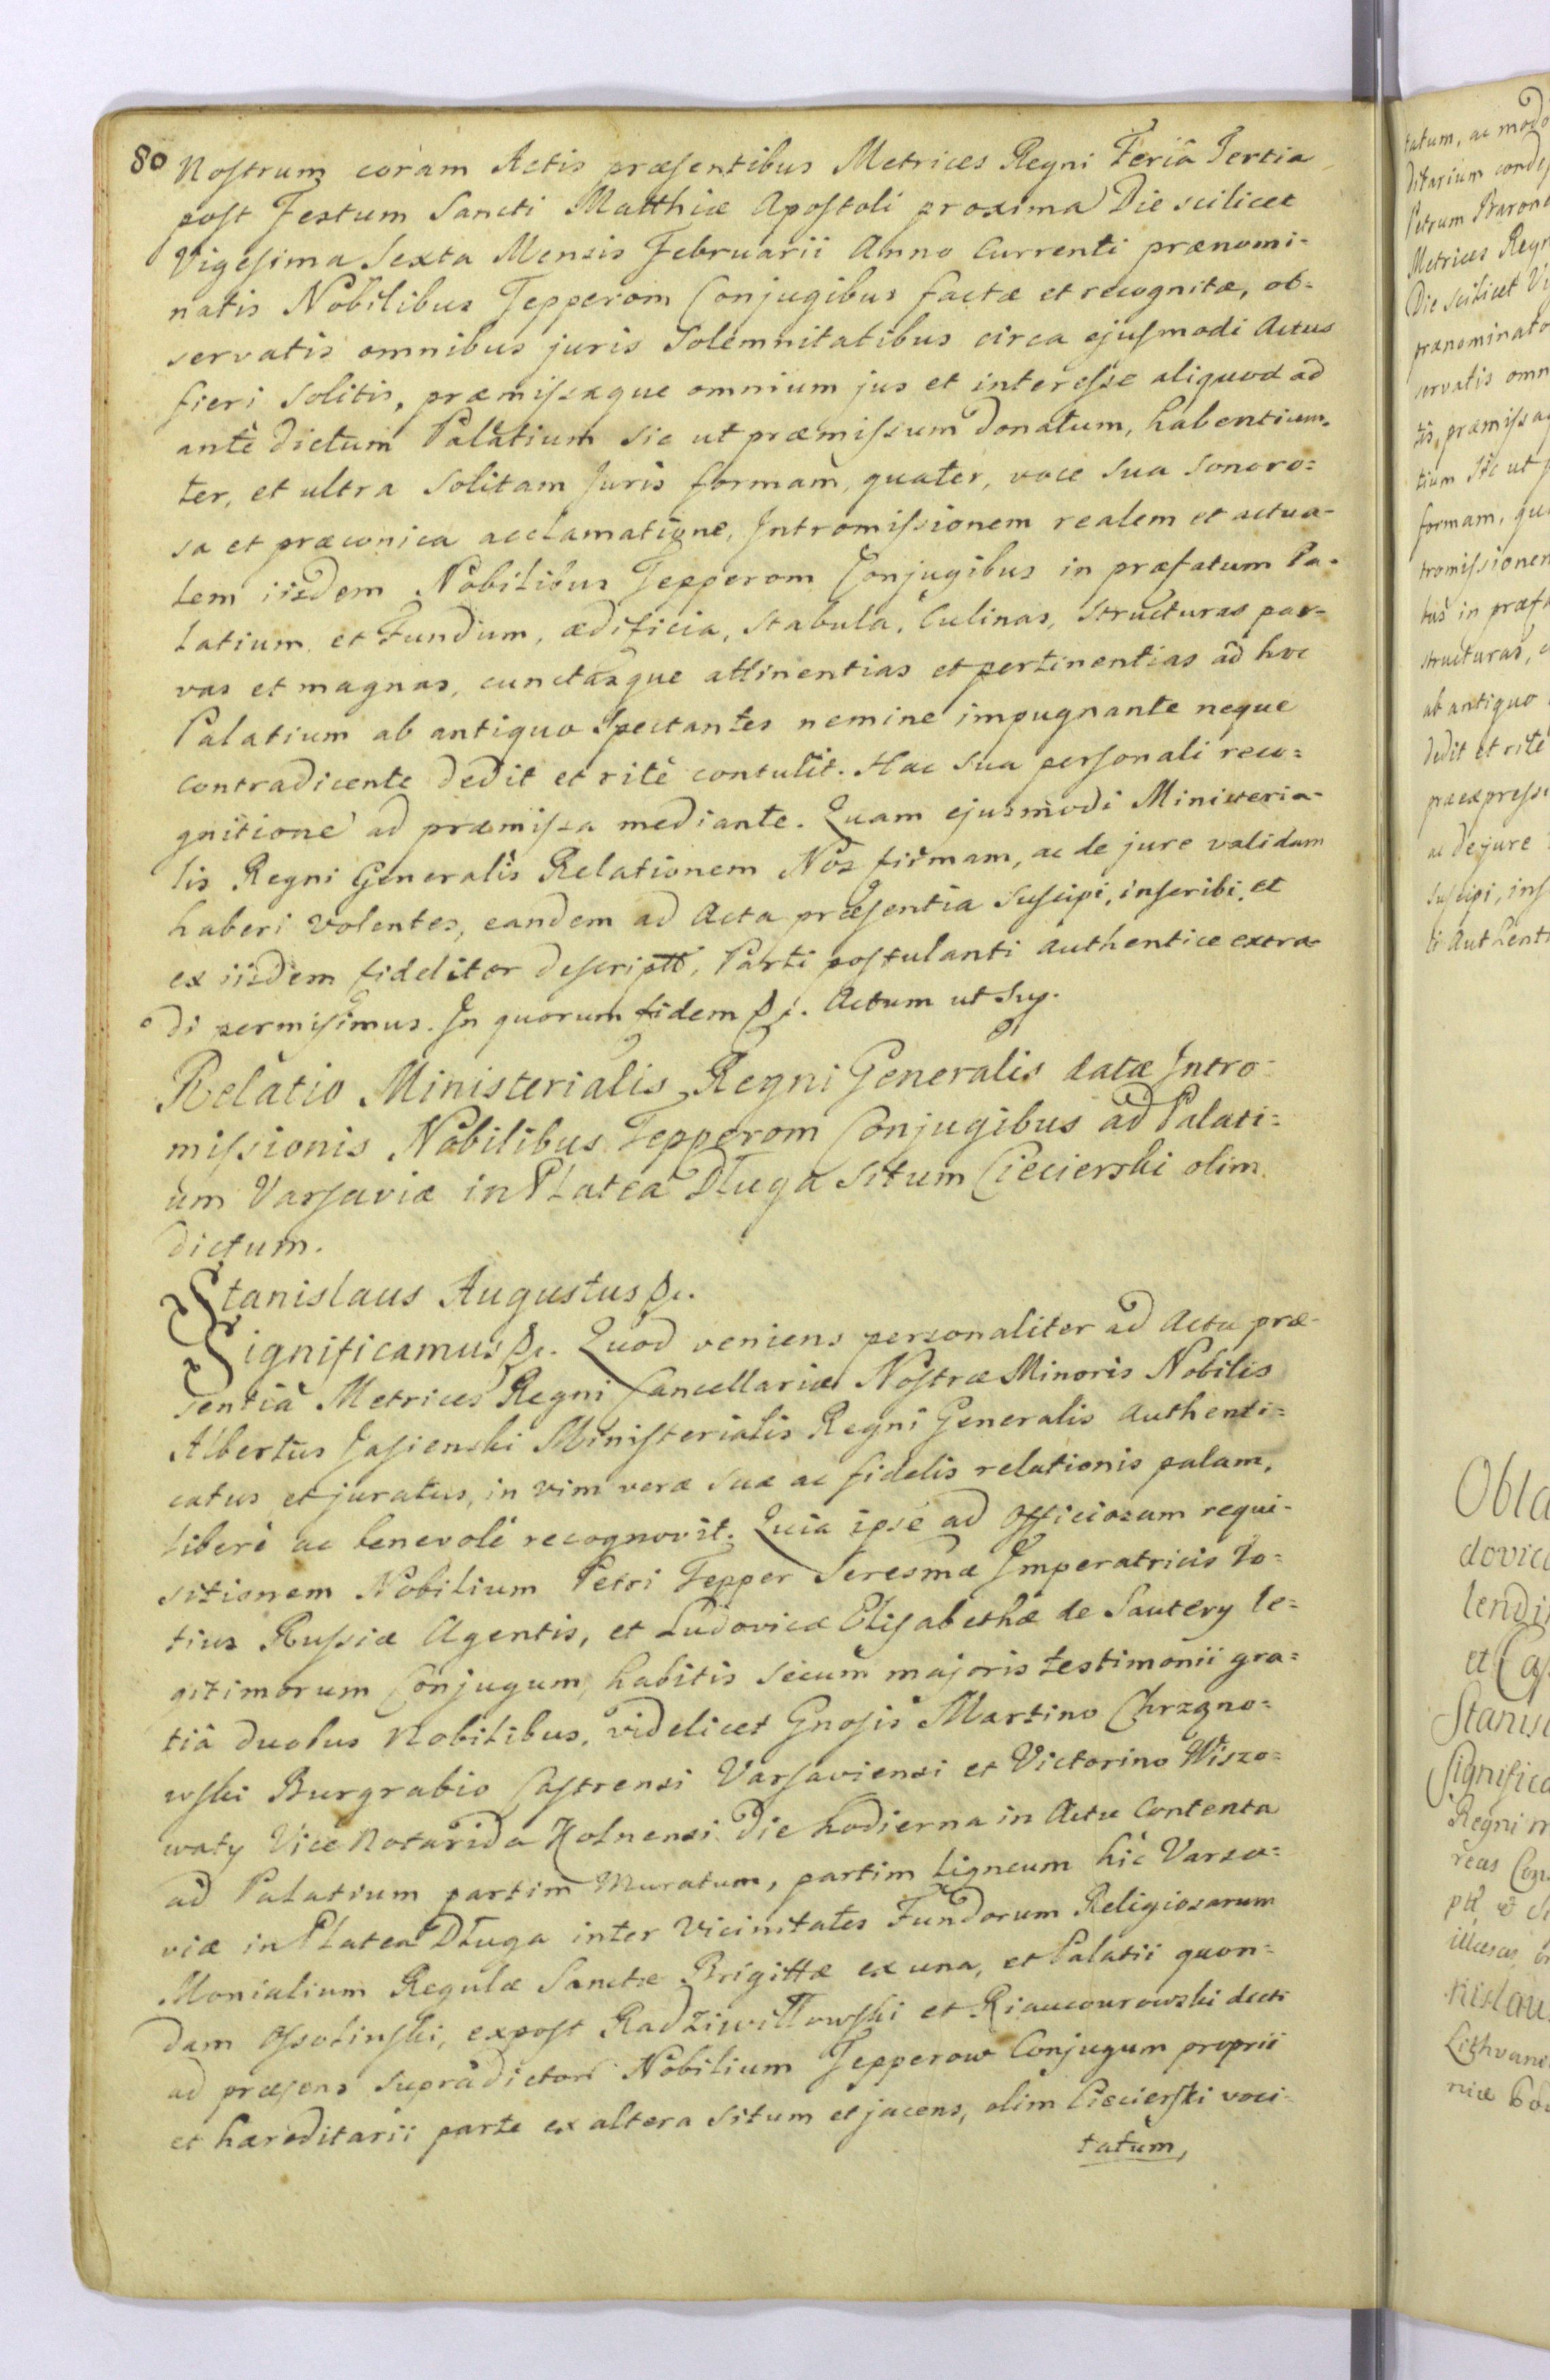 80 Nostrum coram Actis præsentibus Metrices Regni Feriâ Tertia
post Festum Sancti Matthiæ Apostoli proxima Die scilicet
Vigesima Sexta Mensis Februarii Anno Currenti prænomi-
natis Nobilibus Tepperom Conjugibus factæ et recognitæ, ob-
servatis omnibus juris Solemnitatibus circa ejusmodi Actus
fieri Solitis, præmissaque omnium jus et interesse aliquod ad
ante dictum Palatium sic ut præmissum donatum, habentium
ter, et ultra Solitam Juris formam, quater, voce Sua Sonoro=
sa et præconica acclamatione, Intromissionem realem et actua-
lem iisdem Nobilibus Tepperom Conjugibus in præfatum Pa-
latium et Fundum, ædificia, Stabula, Culinas, Structuras par-
vas et magnas, cunctasque attinentias et pertinentias ad hoc
Palatium ab antiquo Spectantes nemine impugnante neque
contradicente dedit et ritè contulit. Hac Sua personali reco=
gnitione ad præmissa mediante. Quam ejusmodi Ministeria-
lis Regni Generalis Relationem Nos firmam, ac de jure validam
haberi volentes, eandem ad Acta præsentia Suscipi, inscribi, et
ex iisdem fideliter descriptt, Parti postulanti authentice extra-
di permisimus. In quorum fidem &c. Actum ut Sup.
Relatio Ministerialis Regni Generalis datæ Intro-
missionis Nobilibus Tepperom Conjugibus ad Palati=
um Varsaviæ in Platea Długa Situm Ciecierski olim
dictum.
Stanislaus Augustus &c.
Significamus &c. Quod veniens personaliter ad Acta præ-
sentia Metrices Regni Cancellariæ Nostræ Minoris Nobilis
Albertus Jasienski Ministerialis Regni Generalis Authenti=
catus et juratus, in vim veræ suæ ac fidelis relationis palam,
liberè ac benevolè recognovit. Quia ipse ad Officiosam requi-
sitionem Nobilium Petri Tepper Seresmæ Imperatricis To=
tius Russiæ Agentis, et Ludovicæ Elisabethæ de Sautery le=
gitimorum Conjugum, habitis Secum majoris testimonii gra=
tiâ duobus Nobilibus, videlicet Gnosis Martino Chrzano=
wski Burgrabio Castrensi Varsaviensi et Victorino Wiszo=
waty Vice Notario Kolnensi die hodierna in Actu Contenta
ad Palatium partim Muratum, partim Ligneum hic Varsa=
viæ in Platea Długa inter Vicinitates Fundorum Religiosarum
Monialium Regulæ Sanctæ Brigittæ ex una, et Palatii quon=
dam Ossolinski, expost Radziwiłłowski et Riaucourowski dicti
ad præsens Supradictor Nobilium Tepperow Conjugum proprii
et hæreditarii parte ex altera Situm et jacens, olim Ciecierski voci-
tatum,
tatum, ac modo
ditarium
Petrum Baron
Metrices Regn
Die Scilicet Vi
prænominato
servatis omn
tis, præmissa
tium Sic ut p
formam, qu
tromissionen
bus in præf
structuras,
ab antiquo
dedit et rite
præexpress
ac de jure
Suscipi, ins
ti Authent
Obla
dovic
lendi
et Ca
Stanis
Significa
Regni m
reas
illæsas
nislau
Lithvan
niæ